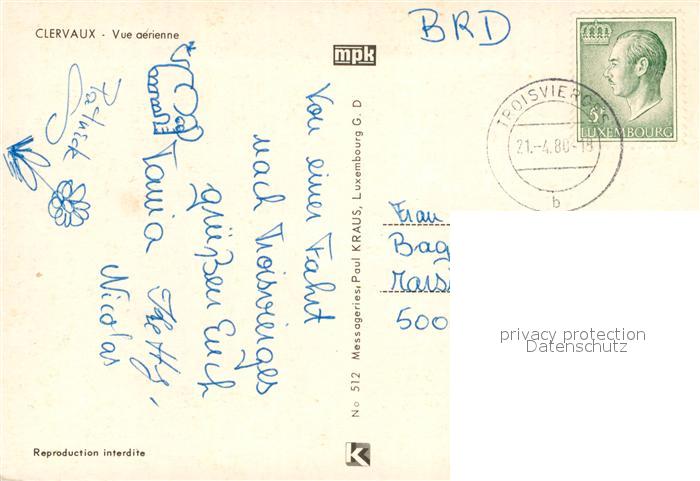 CLERVAUX - Vue aérienne
mpk
BRD
TROISVIERGES
21.-4.80-18
b
5F
LUXEMBOURG
Von einer Fahrt
nach Troisvierges
grüßen Euch
Tania
Nicolas
Patrick
No 512 Messageries Paul KRAUS, Luxembourg G. D
Frau
Bag
500
privacy protection
Datenschutz
Reproduction interdite
K